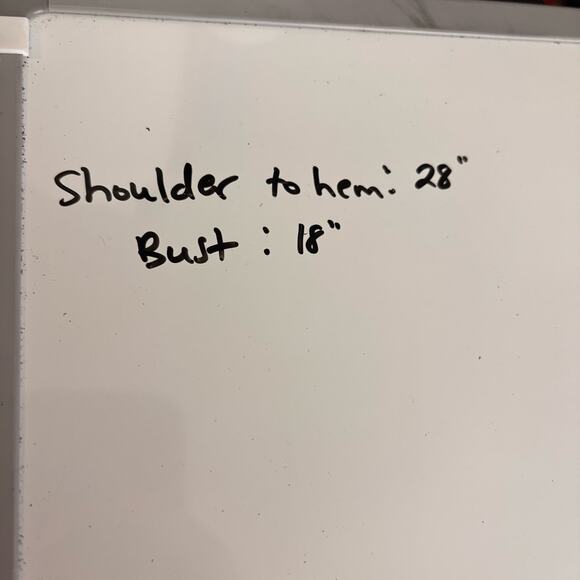 Shoulder to hem: 28"
Bust : 18"